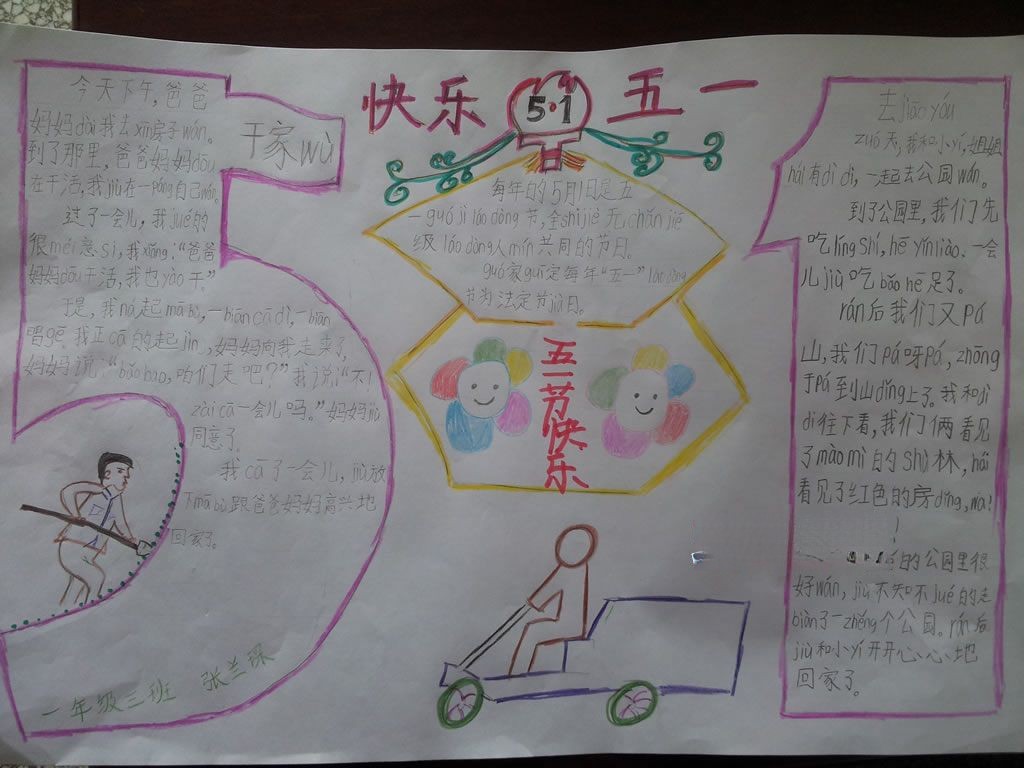 快乐 5·1 五一
干家wù
今天下午,爸爸
妈妈dài我去xīn房子wán。
到了那里,爸爸妈妈dōu
在干活,我jiù在一páng自己wán。
过了一会儿,我jué的
很méi意sī,我xiǎng:“爸爸
妈妈dōu干活,我也yào干”
于是,我ná起mā bù,一biān cā dì,一biān
唱gē,我正cā的起jìn,妈妈向我走来了,
妈妈说:“bǎo bao,咱们走吧?”我说:“不!
zài cā一会儿吗。”妈妈jiù
同意了。
我cā了一会儿,jiù放
下mā bù跟爸爸妈妈高兴地
回家了。
一年级三班 张兰琛
每年的5月1日是五
一guó jì láo dòng节,全shì jiè无chǎn jiē
级láo dòng人mín共同的节日。
guó家guī定每年“五一”láo dòng
节为法定节jià日。
五一节快乐
去jiāo yóu
zuó天,我和小yí,姐姐
hái有dì di,一起去公园wán。
到了公园里,我们先
吃líng shí,hē yǐn liào、一会
儿jiù吃bǎo hē足了。
rán后我们又pá
山,我们pá呀pá,zhōng
于pá到山dǐng上了。我和dì
di往下看,我们俩看见
了mào mì的shù林,hái
看见了红色的房dǐng,wa!
的公园里很
好wán,jiù不知不jué的走
biàn了一zhěng个公园。rán后
jiù和小yí开开心心地
回家了。